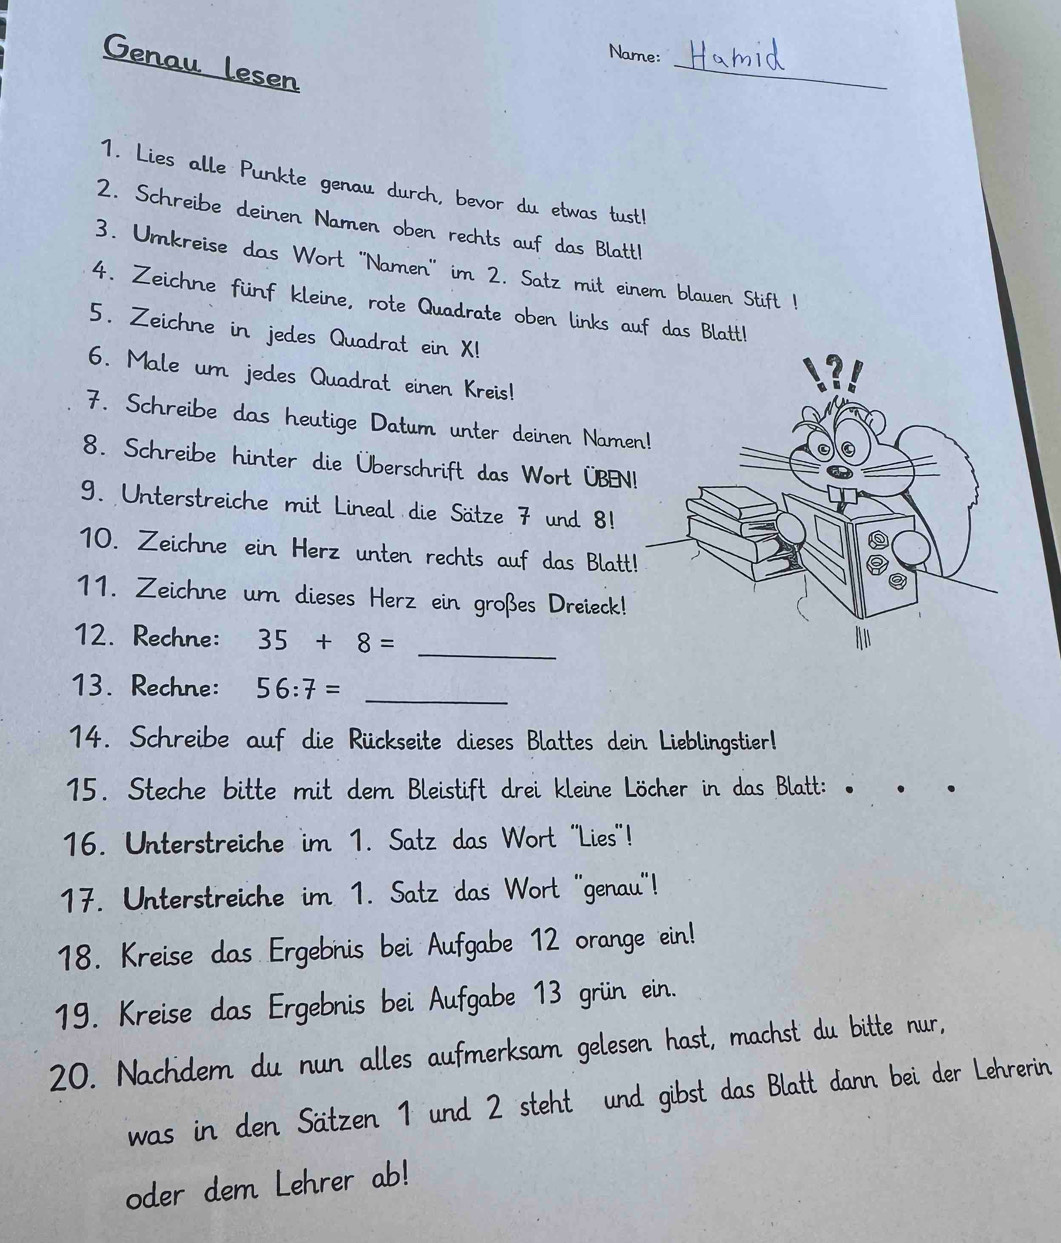 Genau lesen
Name: Hamid
1. Lies alle Punkte genau durch, bevor du etwas tust!
2. Schreibe deinen Namen oben rechts auf das Blatt!
3. Umkreise das Wort "Namen" im 2. Satz mit einem blauen Stift !
4. Zeichne fünf kleine, rote Quadrate oben links auf das Blatt!
5. Zeichne in jedes Quadrat ein X!
6. Male um jedes Quadrat einen Kreis!
7. Schreibe das heutige Datum unter deinen Namen!
8. Schreibe hinter die Überschrift das Wort ÜBEN!
9. Unterstreiche mit Lineal die Sätze 7 und 8!
10. Zeichne ein Herz unten rechts auf das Blatt!
11. Zeichne um dieses Herz ein großes Dreieck!
12. Rechne: 35 + 8 = ________
13. Rechne: 56:7 = ________
14. Schreibe auf die Rückseite dieses Blattes dein Lieblingstier!
15. Steche bitte mit dem Bleistift drei kleine Löcher in das Blatt: • • •
16. Unterstreiche im 1. Satz das Wort "Lies"!
17. Unterstreiche im 1. Satz das Wort "genau"!
18. Kreise das Ergebnis bei Aufgabe 12 orange ein!
19. Kreise das Ergebnis bei Aufgabe 13 grün ein.
20. Nachdem du nun alles aufmerksam gelesen hast, machst du bitte nur,
was in den Sätzen 1 und 2 steht und gibst das Blatt dann bei der Lehrerin
oder dem Lehrer ab!
!?!